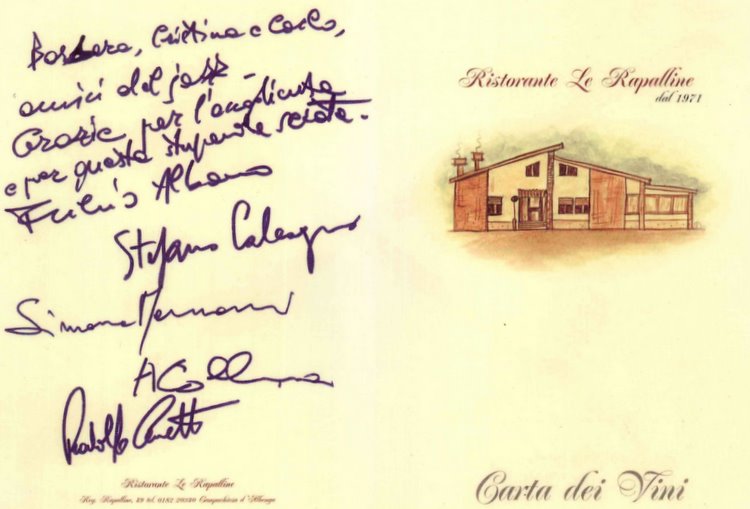 Barbara, Cristina e Carlo,
amici del jazz -
Grazie per l'accoglienza
e per questa stupenda serata -
Fulvio Albano
Stefano Calcagno
Simone
A Coll
Rodolfo Cervetto
Ristorante Le Rapalline
Reg. Rapalline, tel. 0182 Campochiesa d'Albenga
Ristorante Le Rapalline
dal 1971
Carta dei Vini